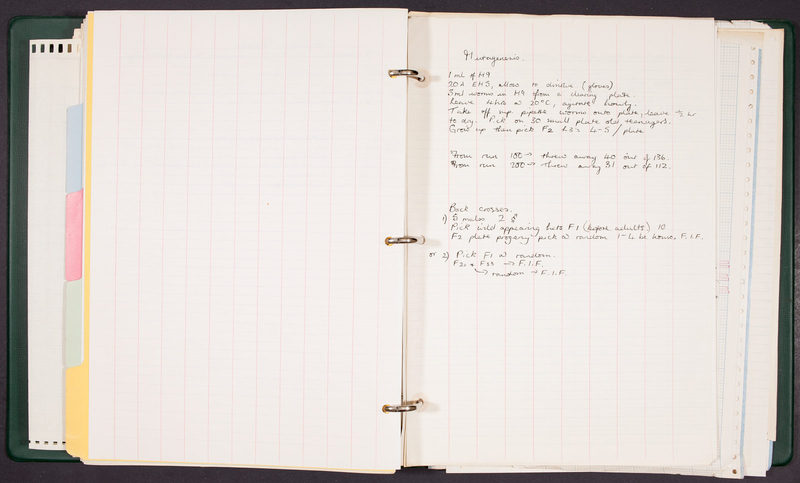 Mutagenesis.
1 ml of M9
20λ EMS, allow to dissolve (gloves)
3ml worms in M9 from a clearing plate.
Leave 4hrs @ 20°C, agitate hourly.
Take off sup, pipette worms onto plate, leave ½ hr
to dry. Pick on 30 small plate old teenagers.
Grow up then pick F2 L3s 4-5 / plate
From run 100 → threw away 40 out of 136.
From run 200 → threw away 31 out of 112.
Back crosses.
1) 5 males 2 ⚥
Pick wild appearing hets F1 (before adults) 10
F2 plate progeny pick @ random F.I.F.
or 2) Pick F1 @ random.
F2s + F3s → F.I.F.
↳ random → F.I.F.